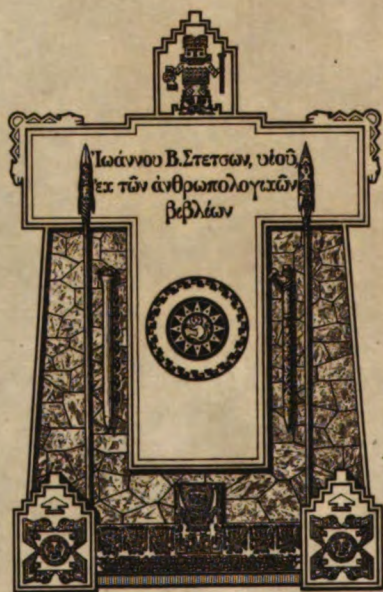 Ἰωάννου Β. Στετσων, υἱοῦ,
ἐκ τῶν ἀνθρωπολογικῶν
βιβλέων